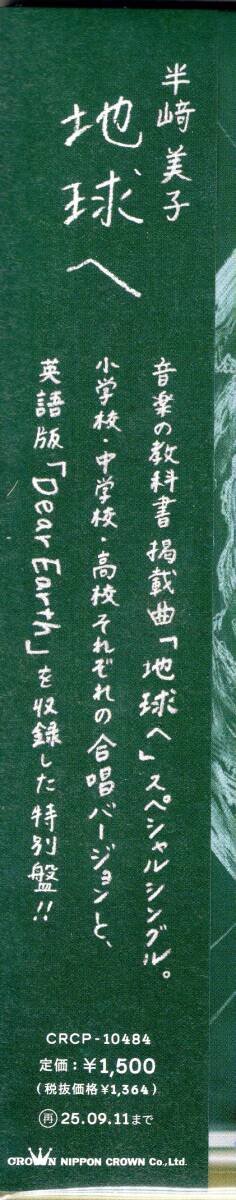 半﨑美子
地球へ
音楽の教科書掲載曲「地球へ」スペシャルシングル。
小学校・中学校・高校それぞれの合唱バージョンと、
英語版「Dear Earth」を収録した特別盤!!
CRCP-10484
定価:¥1,500
(税抜価格¥1,364)
再 25.09.11まで
CROWN NIPPON CROWN Co.,Ltd.